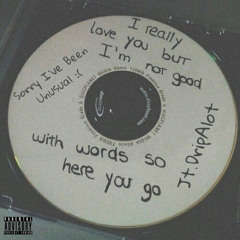 I really
love you but
I'm not good
with words so
here you go
Sorry I've Been
Unusual :(
Jt.DripAlot
PARENTAL
ADVISORY
EXPLICIT CONTENT